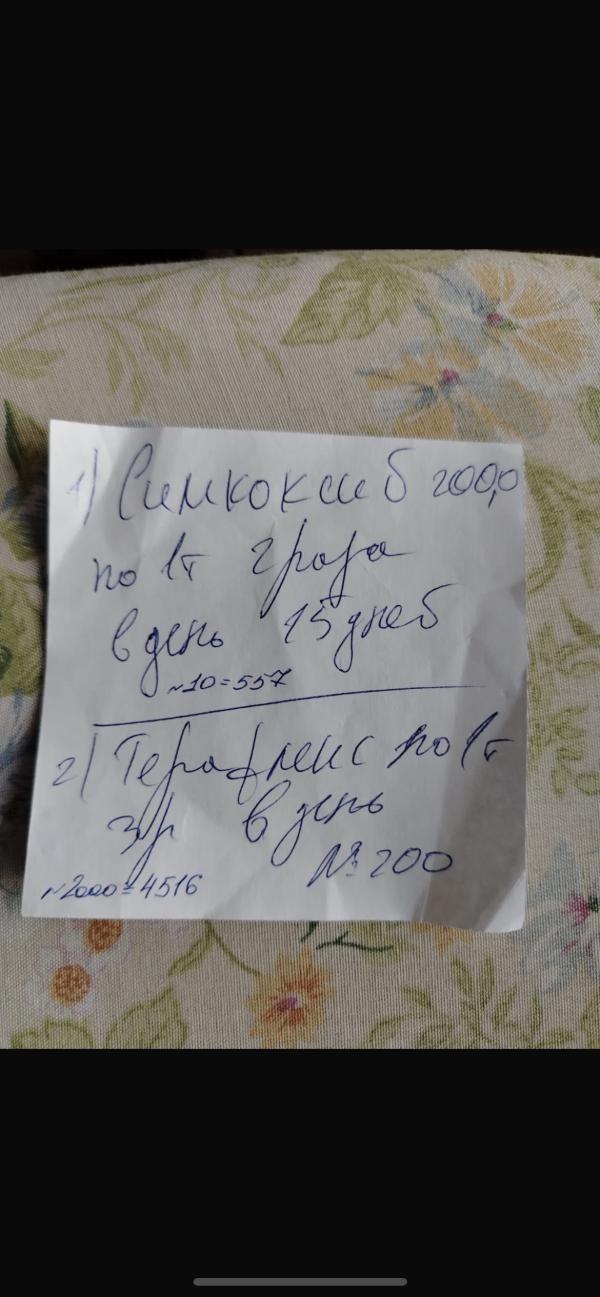 1) Симкоксиб 200,0
по 1т 2 раза
в день 15 дней
№10=557
2) Терафлекс по 1т
3р в день
№ 200
№200=4516